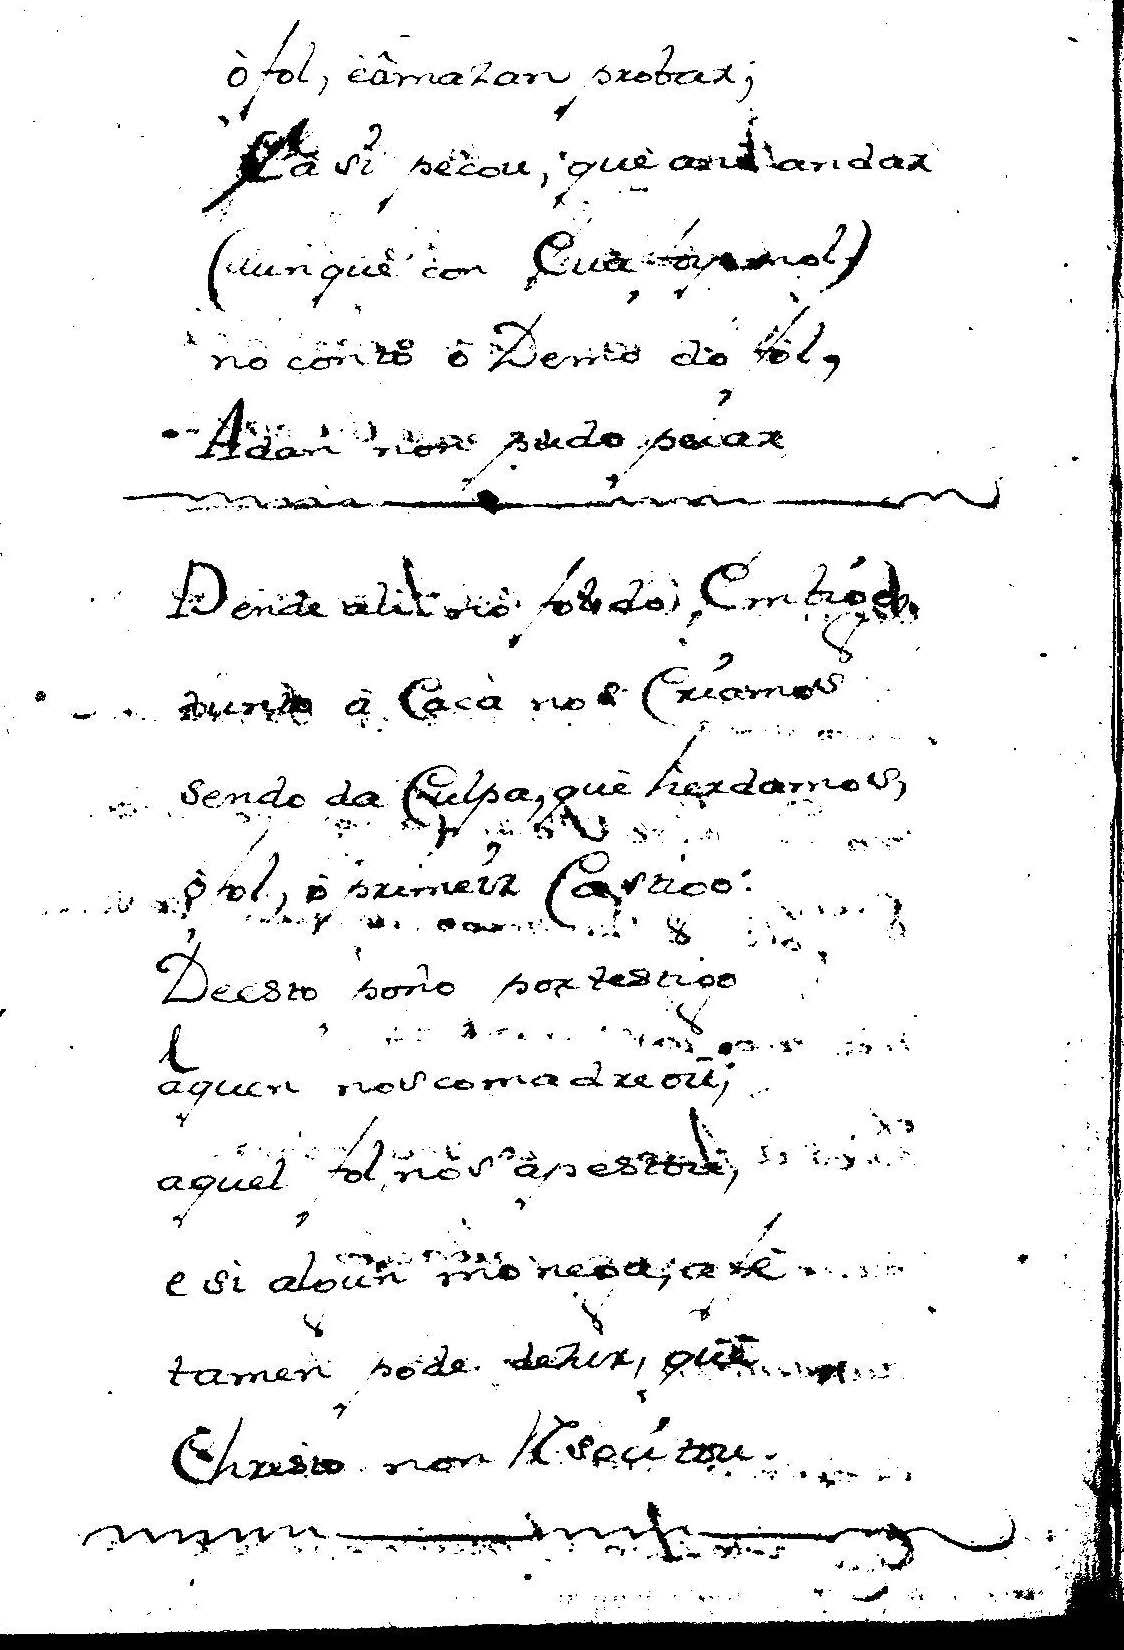 ò fol, èâmazan probar;
La si pecou, què andandar
(aunquè con Eva
no conto ò Demo do fol,
Adan non pudo peiar
Dende ali
tunto à Cacà nos Criamos
sendo da Culpa, què herdamos,
ò fol, ò primeir Castigo:
Deesto poño por testigo
aquen nos comadreou;
aquel fol, nos apestou,
e si algun mo nega, a fè
tamen pode dezir, què
Christo non